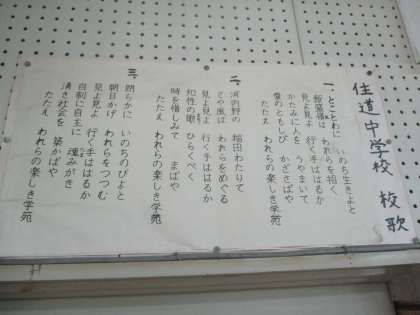 住道中学校 校歌
一、とことわに いのち生きよと
飯盛嶺は われらを招く
見よ見よ 行く手ははるか
かたみに人を うやまいて
愛のともしび かざさばや
たたえ われらの楽しき学苑
二、河内野の 稲田わたりて
さや風は われらをめぐる
見よ見よ 行く手ははるか
知性の眼 ひらくべく
時を惜しみて まばや
たたえ われらの楽しき学苑
三、朗らかに いのちのびよと
朝日かげ われらをつつむ
見よ見よ 行く手ははるか
自制に自主に 魂みがき
清き社会を 築かばや
たたえ われらの楽しき学苑